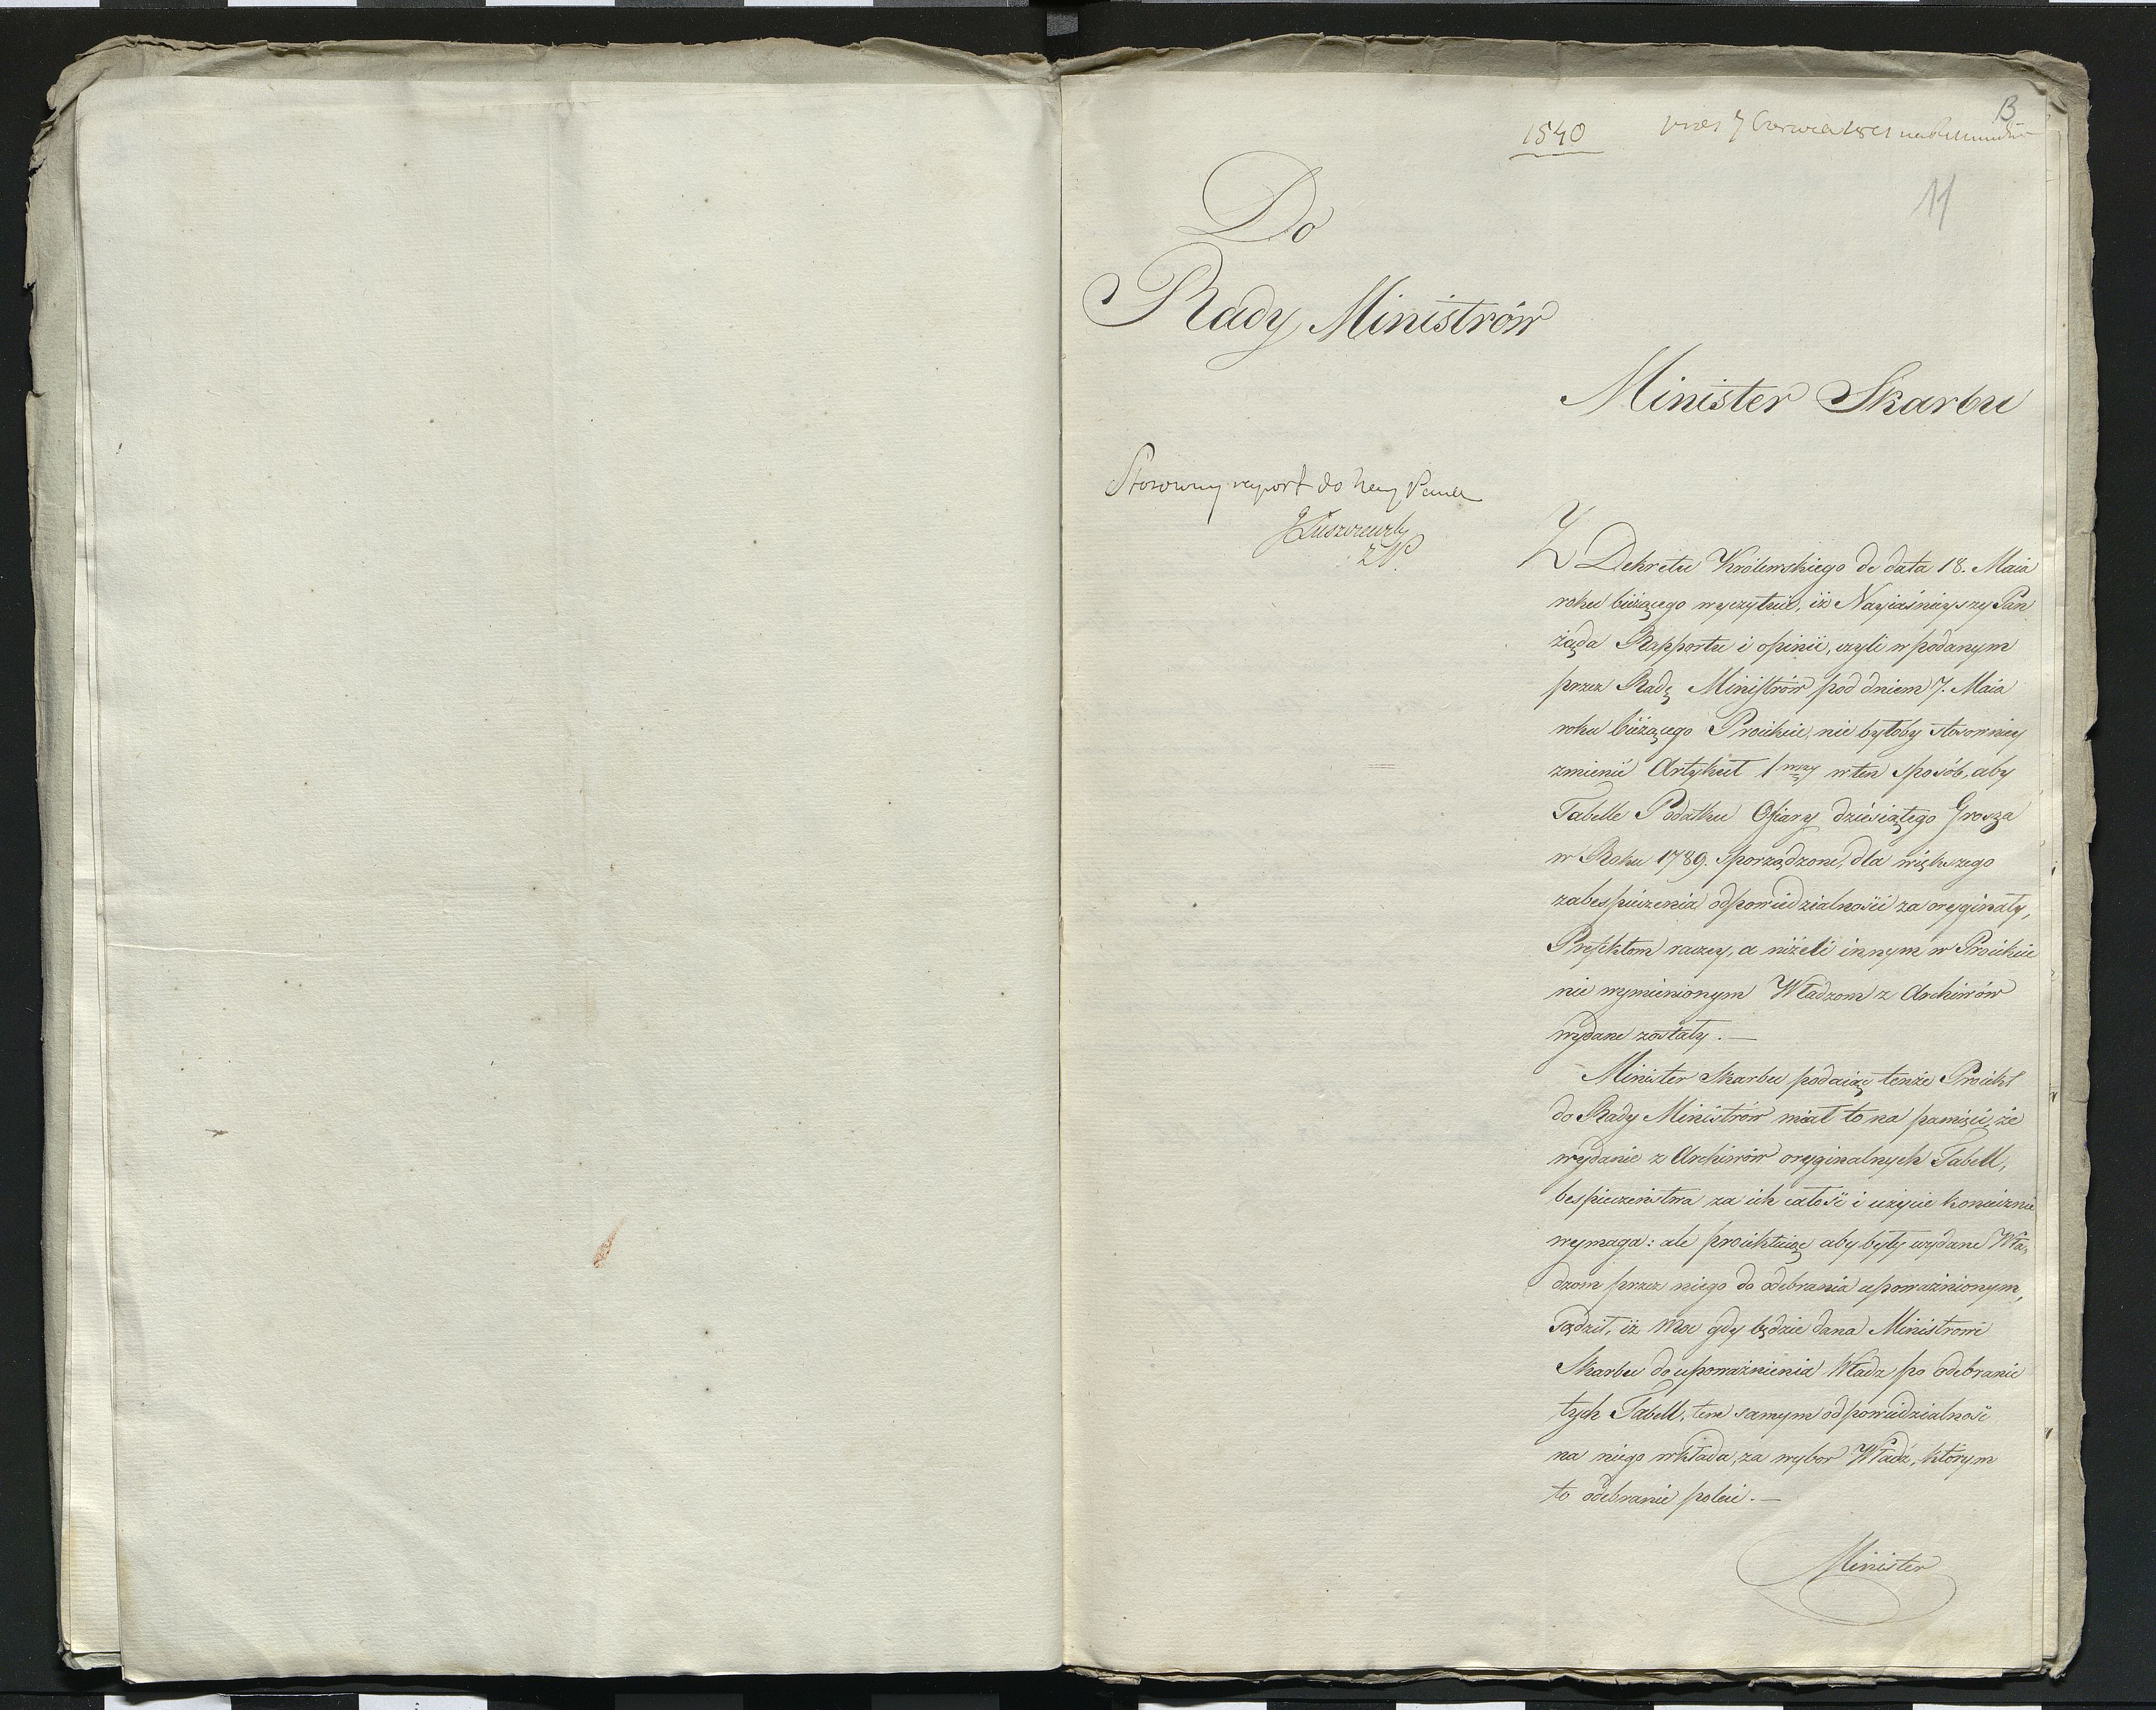 13
1540
11
Do
Rady Ministrów
Minister Skarbu
Stosowny raport do
JŁuszczewsky
Z Dekretu Królewskiego de data 18. Maia
roku bieżącego wyczytuie, iż Nayiaśnieyszy Pan
żąda Rapportu i opinii, czyli w podanym
przez Radę Ministrów pod dniem 7. Maia
roku bieżącego Proiekcie, nie byłoby stosowniey
zmienić Artykuł 1wszy w ten sposób, aby
Tabelle Podatku Ofiary dziesiątego Grosza
w Roku 1789. sporządzone, dla większego
zabespieczenia odpowiedzialności za oryginały,
Prefektom raczey, a niżeli innym w Proiekcie
nie wymienionym Władzom z Archiwów
wydane zostały. —
Minister Skarbu podaiąc tenże Proiekt
do Rady Ministrów miał to na pamięci, że
wydanie z Archiwów oryginalnych Tabell,
bespieczeństwa za ich całość i użycie koniecznie
wymaga: ale proiektuiąc aby były wydane Wła-
dzom przez niego do odebrania upoważnionym,
sądził, iż moc gdy będzie dana Ministrowi
Skarbu do upoważnienia Władz po odebranie
tych Tabell, tem samym odpowiedzialność
na niego wkłada, za wybor Władz, którym
to odebranie poleci. —
Minister